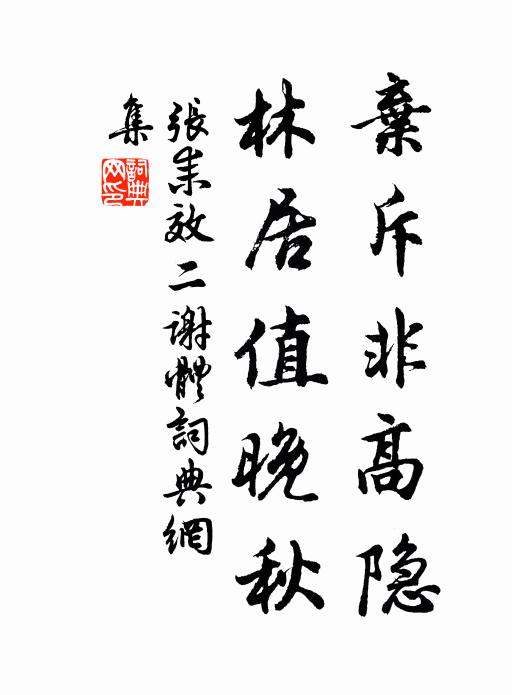 棄斥非高隐
林居值晚秋
張耒效二謝體詞典網
集
詞典網印